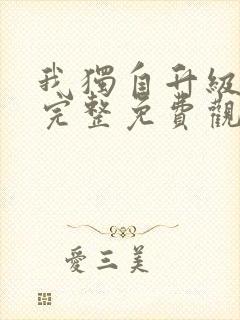 我獨自升級
完整免費觀
愛三美